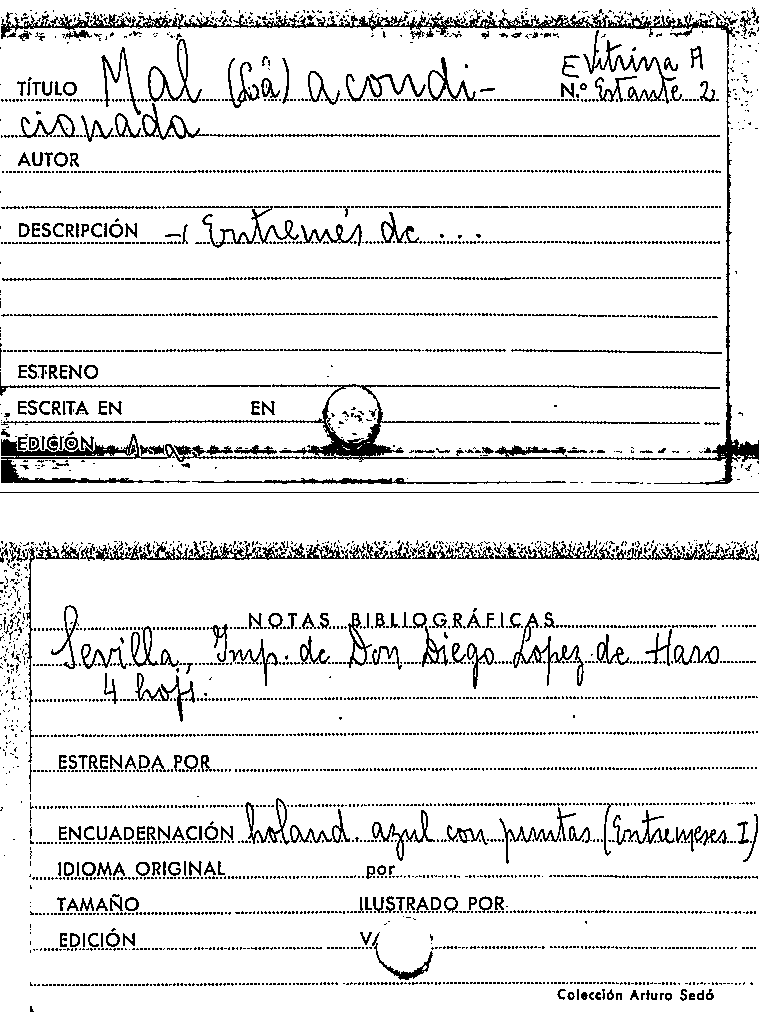 E Vitrina A
TÍTULO Mal (La) acondi-
N.º Estante 2
cionada
AUTOR
DESCRIPCIÓN - Entremés de ...
ESTRENO
ESCRITA EN EN
EDICIÓN
NOTAS BIBLIOGRÁFICAS
Sevilla, Imp. de Don Diego Lopez de Haro
4 hojs.
ESTRENADA POR
ENCUADERNACIÓN holand. azul con puntas (Entremeses I)
IDIOMA ORIGINAL por
TAMAÑO ILUSTRADO POR
EDICIÓN V/
Colección Arturo Sedó